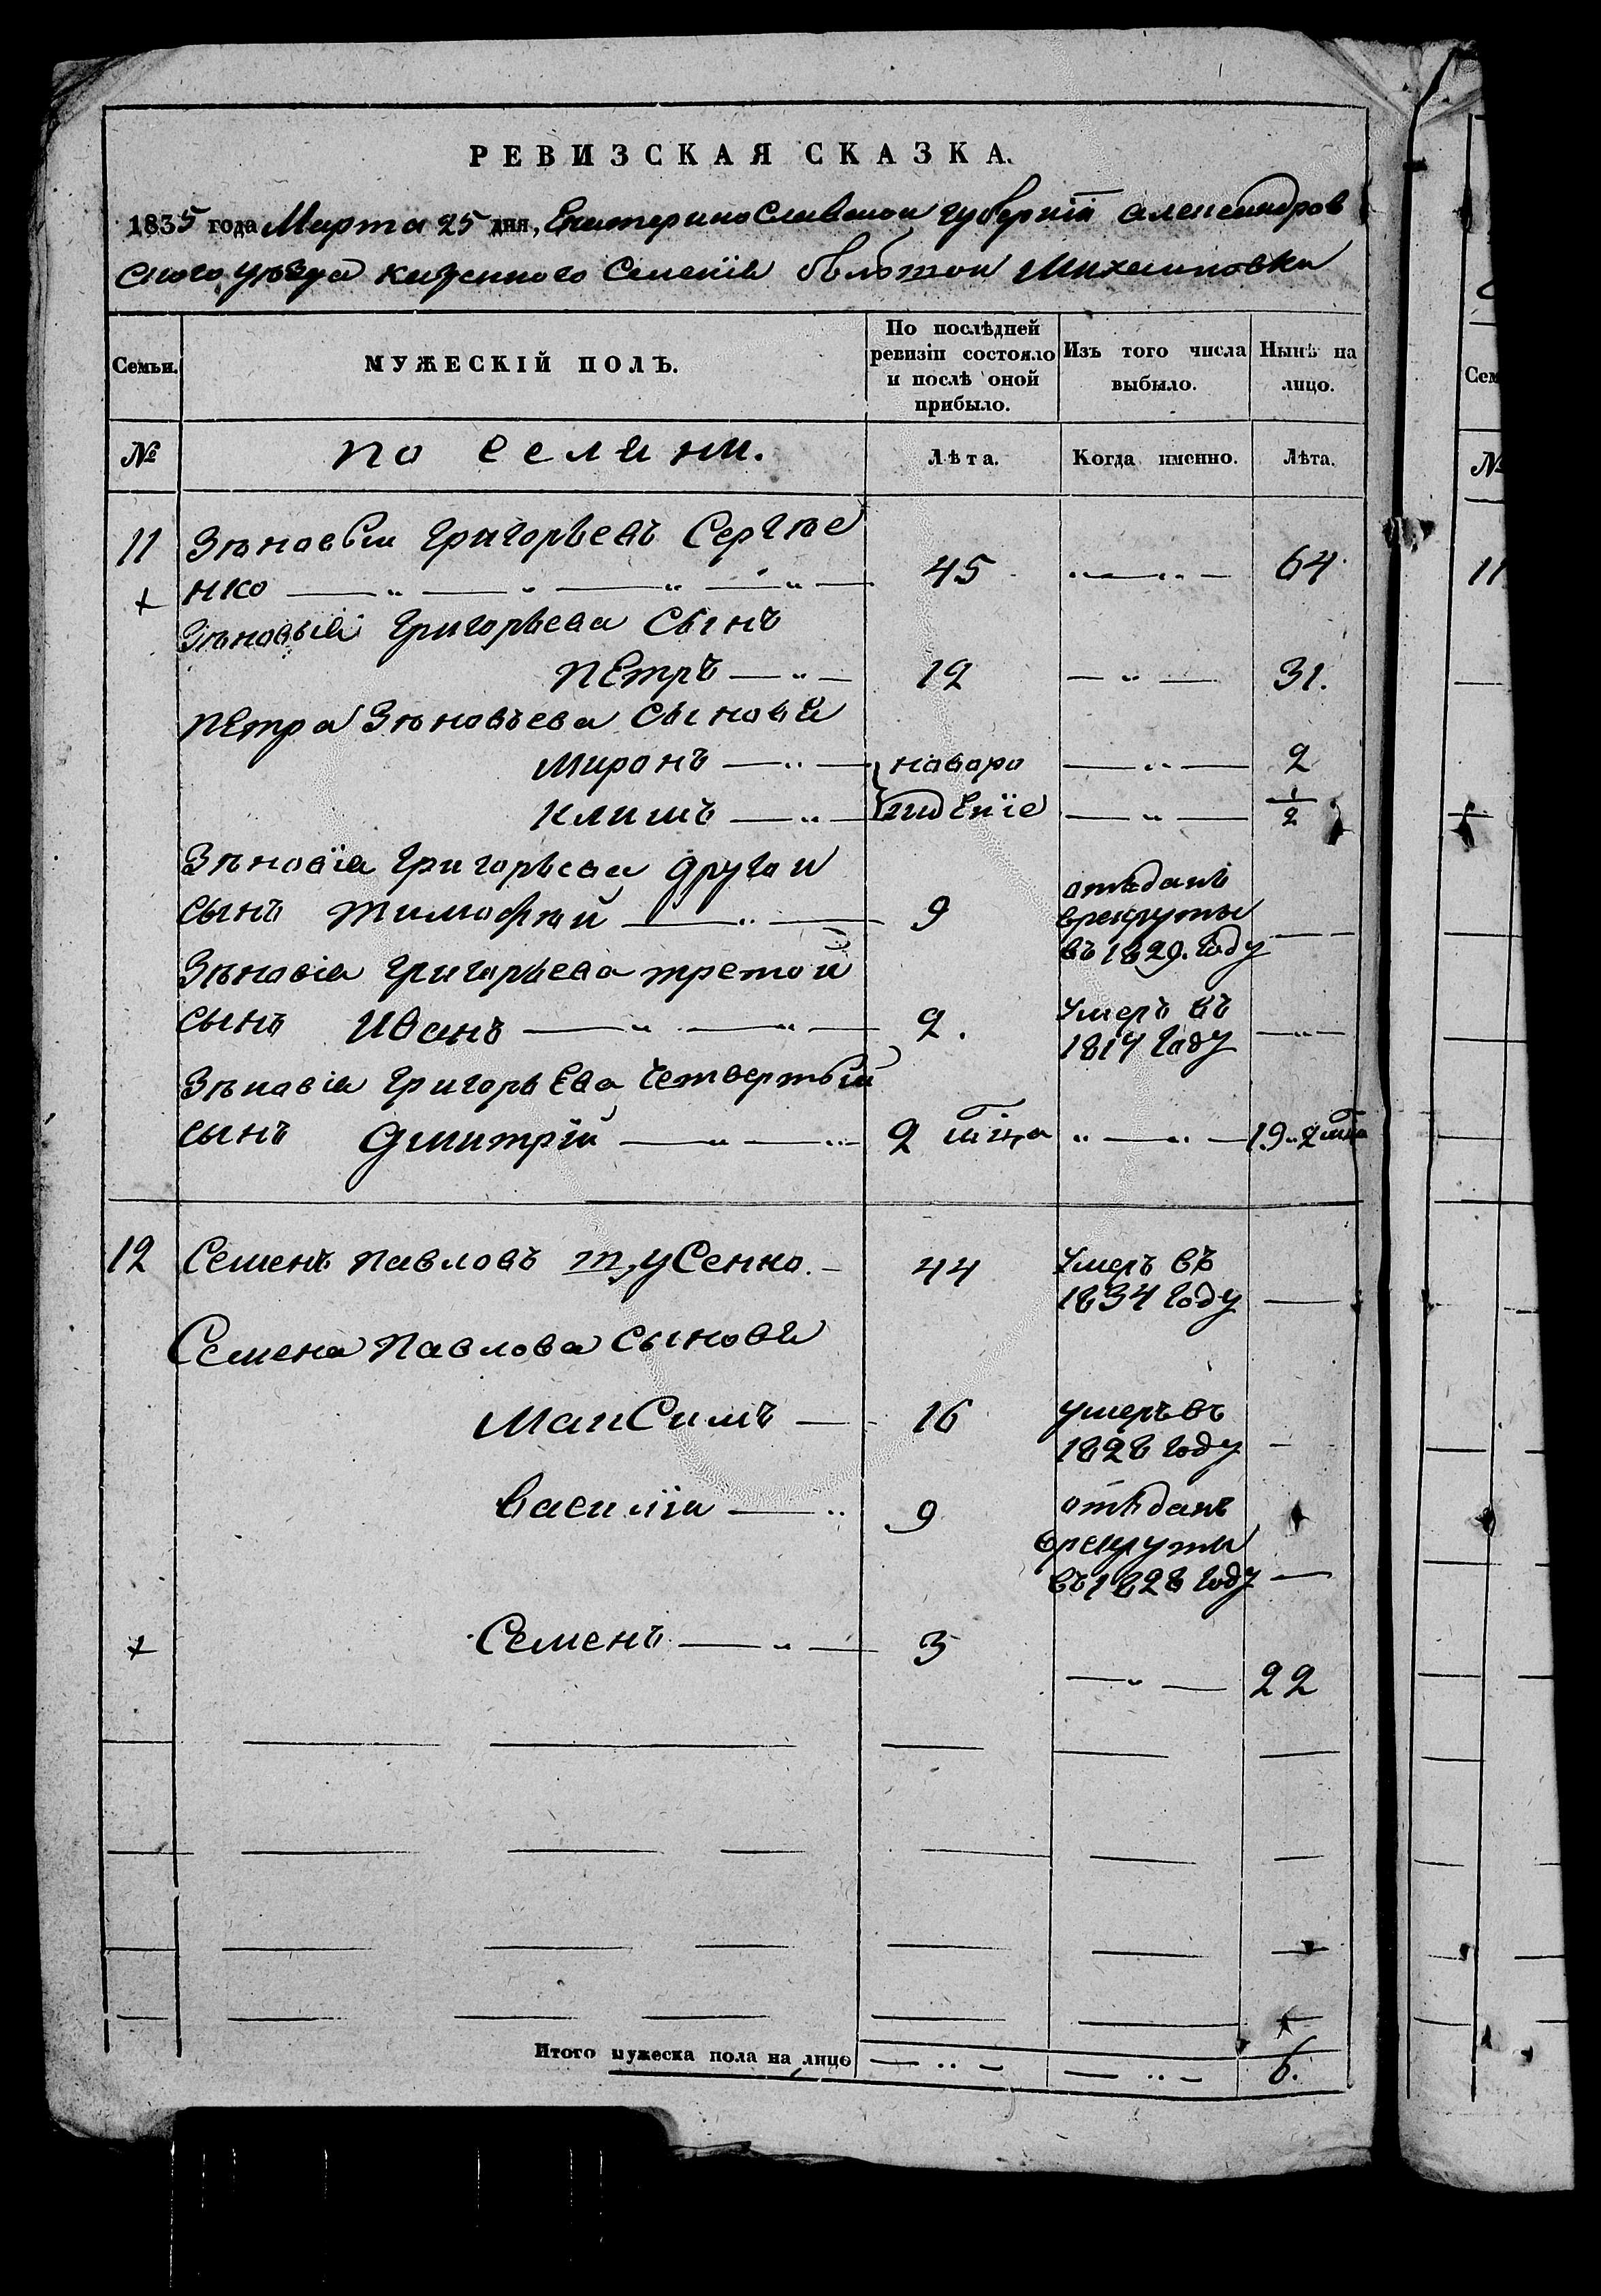 РЕВИЗСКАЯ СКАЗКА.
1835 года Марта 25 дня, Екатеринославской губерніи александров
ского уѣзда казенного Селенія Михаиловки
Семьи. МУЖЕСКІЙ ПОЛЪ. По послѣдней ревизіи состояло и послѣ оной прибыло. Изъ того числа выбыло. Нынѣ на лицо.
№ поселяни. Лѣта. Когда именно. Лѣта.
11 Зѣновьи Григорьевъ Сергѣе
нко 45 64
Зѣновьій Григорьева Сынъ
Петръ 12 31.
Петра Зѣновьева Сыновья
Миронъ новоро 2
Климъ жденіе 1/2
Зѣновія Григорьева другои
сынъ тимофѣй 9 отъданъ
врекруты
въ 1829. Году
Зѣновія Григорьева третои
сынъ Иванъ 2. Умеръ въ
1817 Году
Зѣновія Григорьева Четвертый
сынъ Дмитрій 2 мца 19.. 2 мца
12 Семенъ павловъ тусенко. 44 Умеръ въ
1834 Году
Семена павлова Сыновья
МакСимъ 16 умеръ въ
1828 Году
василіи 9 отъданъ
врекруты
въ 1828 Году
Семенъ 3
22
Итого мужеска пола на лицо 6.
Сем
№
11